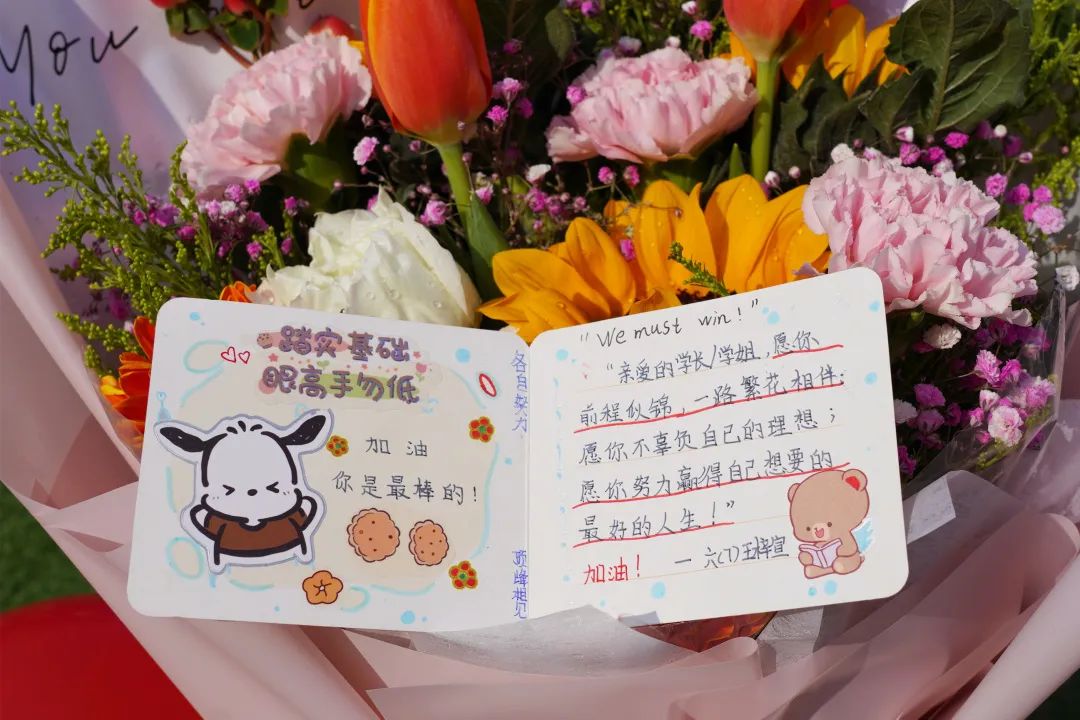 You
踏实基础
眼高手勿低
加油
你是最棒的！
各自努力
顶峰相见
"We must win!"
"亲爱的学长/学姐，愿你
前程似锦，一路繁花相伴；
愿你不辜负自己的理想；
愿你努力赢得自己想要的
最好的人生！"
加油！ — 六(7)王梓宣